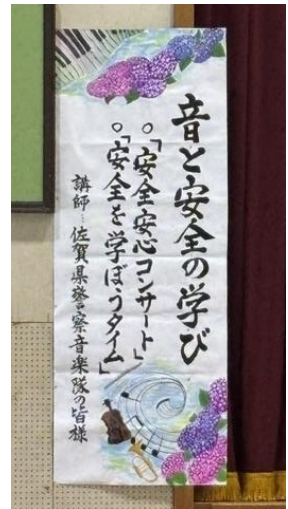 音と安全の学び
○「安全安心コンサート」
○「安全を学ぼうタイム」
講師：佐賀県警察音楽隊の皆様